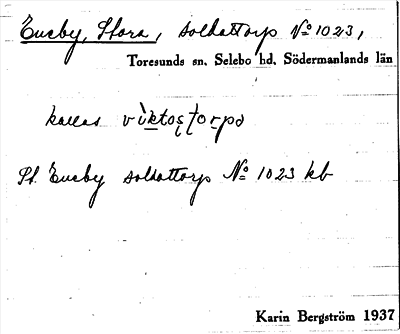 Eneby, Stora, soldattorp No 1023,
Toresunds sn. Selebo hd. Södermanlands län
kallas
St. Eneby soldattorp No 1023 kb
Karin Bergström 1937